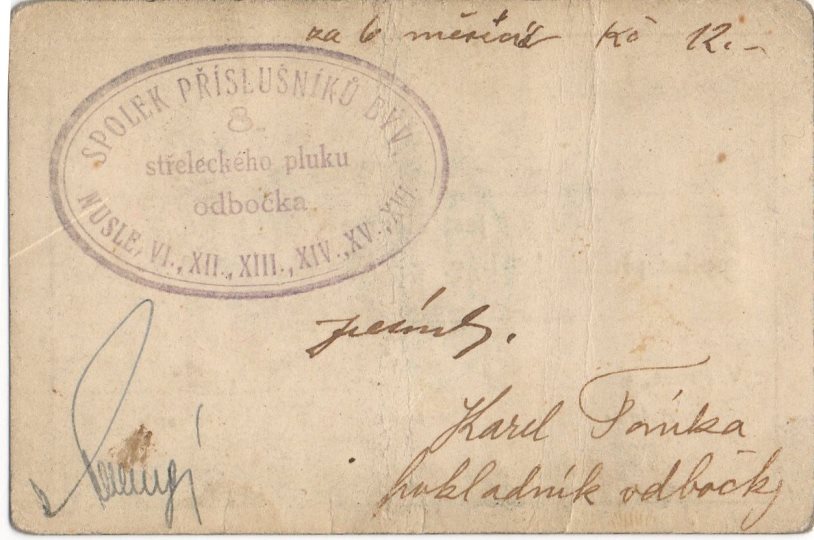 za 6 měsíců Kč 12.-
SPOLEK PŘÍSLUŠNÍKŮ BÝV.
8.
střeleckého pluku
odbočka
NUSLE, VI., XII., XIII., XIV., XV., XVI.
Karel
pokladník odbočky